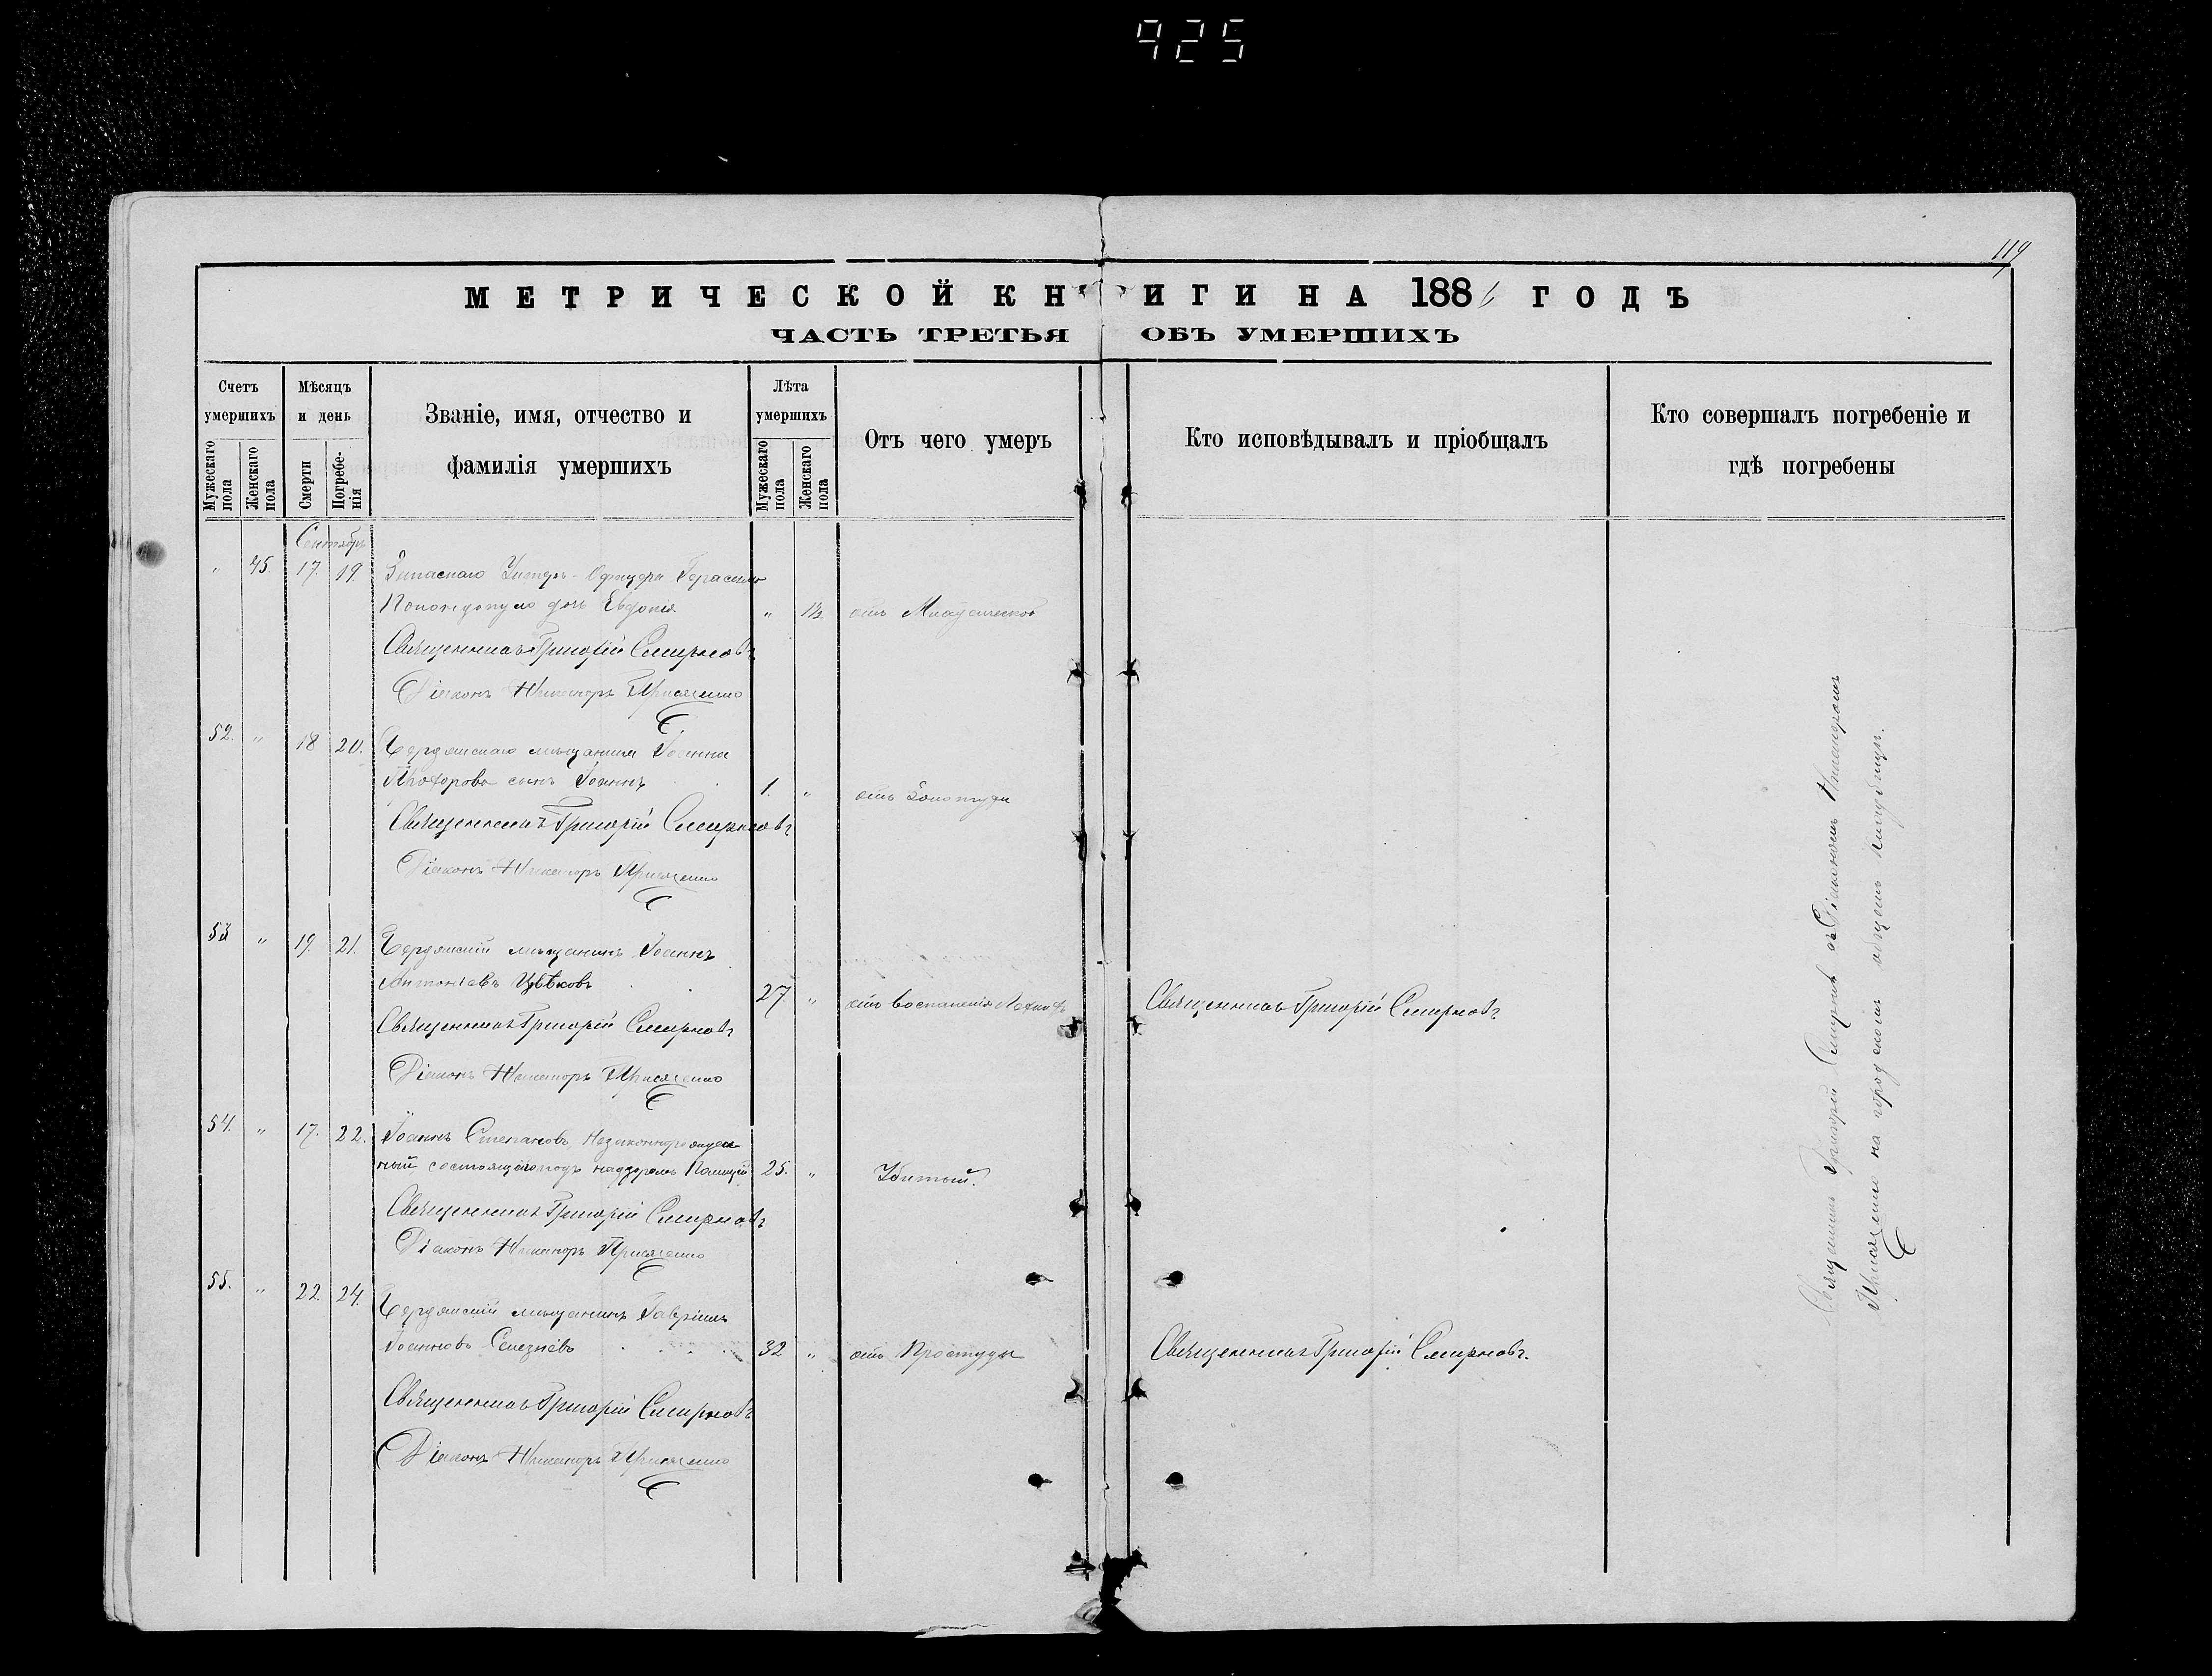 925
119
МЕТРИЧЕСКОЙ КНИГИ НА 1886 ГОДЪ
ЧАСТЬ ТРЕТЬЯ ОБЪ УМЕРШИХЪ
Счетъ умершихъ
Мужескаго пола
Женскаго пола
Мѣсяцъ и день
Смерти
Погребенія
Званіе, имя, отчество и фамилія умершихъ
Лѣта умершихъ
Мужескаго пола
Женскаго пола
Отъ чего умеръ
Кто исповѣдывалъ и пріобщалъ
Кто совершалъ погребеніе и гдѣ погребены
Сентябрь
" 45. 17. 19. Запаснаго Унтеръ-Офицера Герасима
дочь Евдокія " 1½ отъ
Священникъ Григорій Смирновъ
Діаконъ Никаноръ
52. " 18 20. Бердянскаго мѣщанина Іоанна
Прохорова сынъ Іоаннъ 1. " отъ Золотухи
Священникъ Григорій Смирновъ
Діаконъ Никаноръ
53 " 19. 21. Бердянскій мѣщанинъ Іоаннъ
Антоніевъ Цвѣтковъ 27 " отъ воспаленія Легкихъ Священникъ Григорій Смирновъ
Священникъ Григорій Смирновъ
Діаконъ Никаноръ
54. " 17. 22. Іоаннъ Степановъ, Незаконнорожден-
ный состоящій подъ надзоромъ Полиціи 25. " Убитый.
Священникъ Григорій Смирновъ
Діаконъ Никаноръ
55. " 22. 24. Бердянскій мѣщанинъ Гавріилъ
Іоанновъ Селезнёвъ 32 " отъ Простуды Священникъ Григорій Смирновъ.
Священникъ Григорій Смирновъ
Діаконъ Никаноръ
Священникъ Григорій Смирновъ съ Діакономъ Никаноромъ
на городскомъ общемъ кладбищѣ.